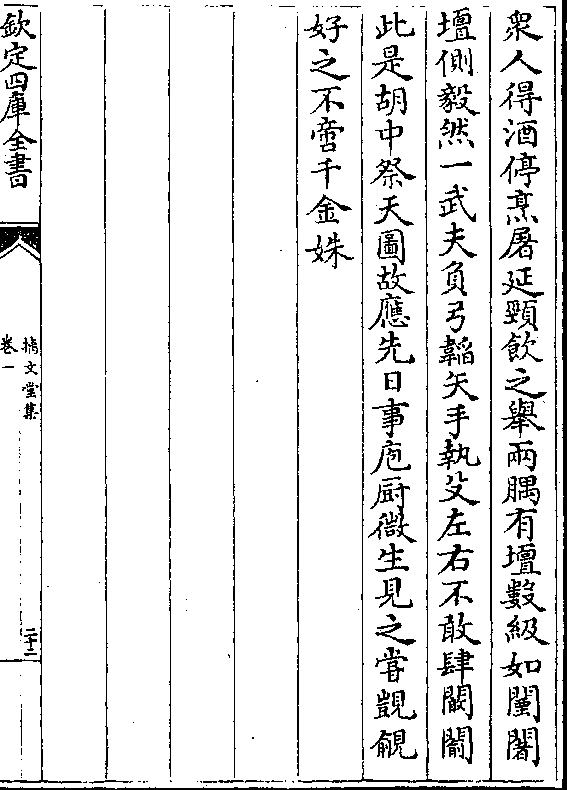 衆人得酒停烹屠延頸飲之舉兩腢有壇數級如闉闍
壇側毅然一武夫負弓韜矢手執殳左右不敢肆
此是胡中祭天圖故應先日事庖厨微生見之甞覬覦
好之不啻千金姝
欽定四庫全書
摛文堂集
卷一
二十二